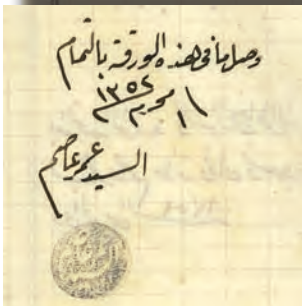 وصل ما في هذه الورقة بالتمام
١١ محرم ١٣٥٢
السيد عمر عاصم